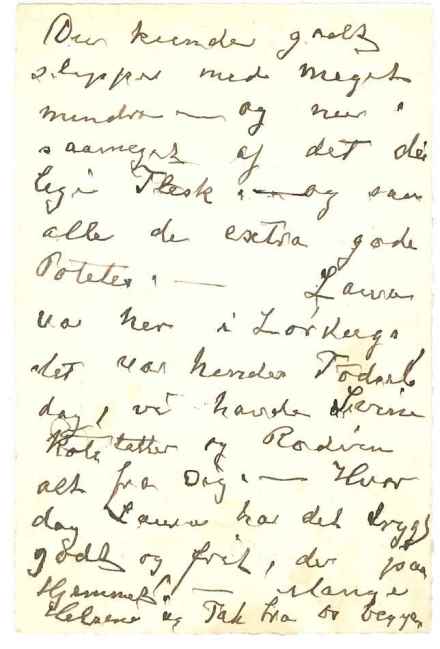 Du kunde godt
slippe med meget
mindre — og nu i
saameget af det dei
lige Flesk, — og saa
alle de extra gode
Poteter. — Laura
va her i Lørdags
det var hendes Fødsels
dag, vi havde Svine
Koteletter og Rødvin
alt fra Dig. — Hver
dag Laura har det trygt
godt og frit, der paa
Hjemmet. — Mange
Helsene og Tak fra os begge